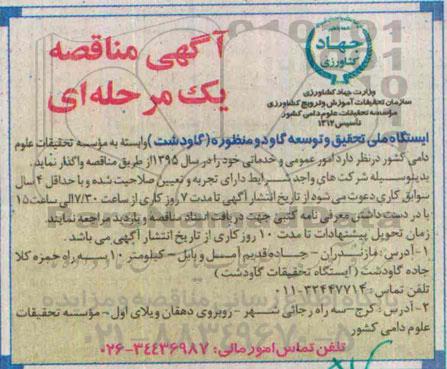 آگهی مناقصه
یک مرحله‌ای
جهاد
کشاورزی
وزارت جهاد کشاورزی
سازمان تحقیقات آموزش و ترویج کشاورزی
مؤسسه تحقیقات علوم دامی کشور
تأسیس ۱۳۱۲
ایستگاه ملی تحقیق و توسعه گاو دو منظوره (گاودشت) وابسته به مؤسسه تحقیقات علوم
دامی کشور در نظر دارد امور عمومی و خدماتی خود را در سال ۱۳۹۵ از طریق مناقصه واگذار نماید.
بدینوسیله شرکت های واجد شرایط دارای تجربه و تعیین صلاحیت شده و با حداقل ۴ سال
سوابق کاری دعوت می شود از تاریخ انتشار آگهی تا مدت ۷ روز کاری از ساعت ۷/۳۰ الی ساعت ۱۵
با در دست داشتن معرفی نامه کتبی جهت دریافت اسناد مناقصه و بازدید مراجعه نمایند.
زمان تحویل پیشنهادات تا مدت ۱۰ روز کاری از تاریخ انتشار آگهی می باشد.
۱- آدرس: مازندران - جاده قدیم آمل و بابل - کیلومتر ۱۰ سه راه حمزه کلا
جاده گاودشت (ایستگاه تحقیقات گاودشت)
تلفن تماس: ۳۲۴۴۷۷۱۴-۰۱۱
۲- آدرس: کرج - سه راه رجائی شهر - روبروی دهقان ویلای اول - مؤسسه تحقیقات
علوم دامی کشور
تلفن تماس امور مالی: ۳۴۴۳۶۹۸۷-۰۲۶